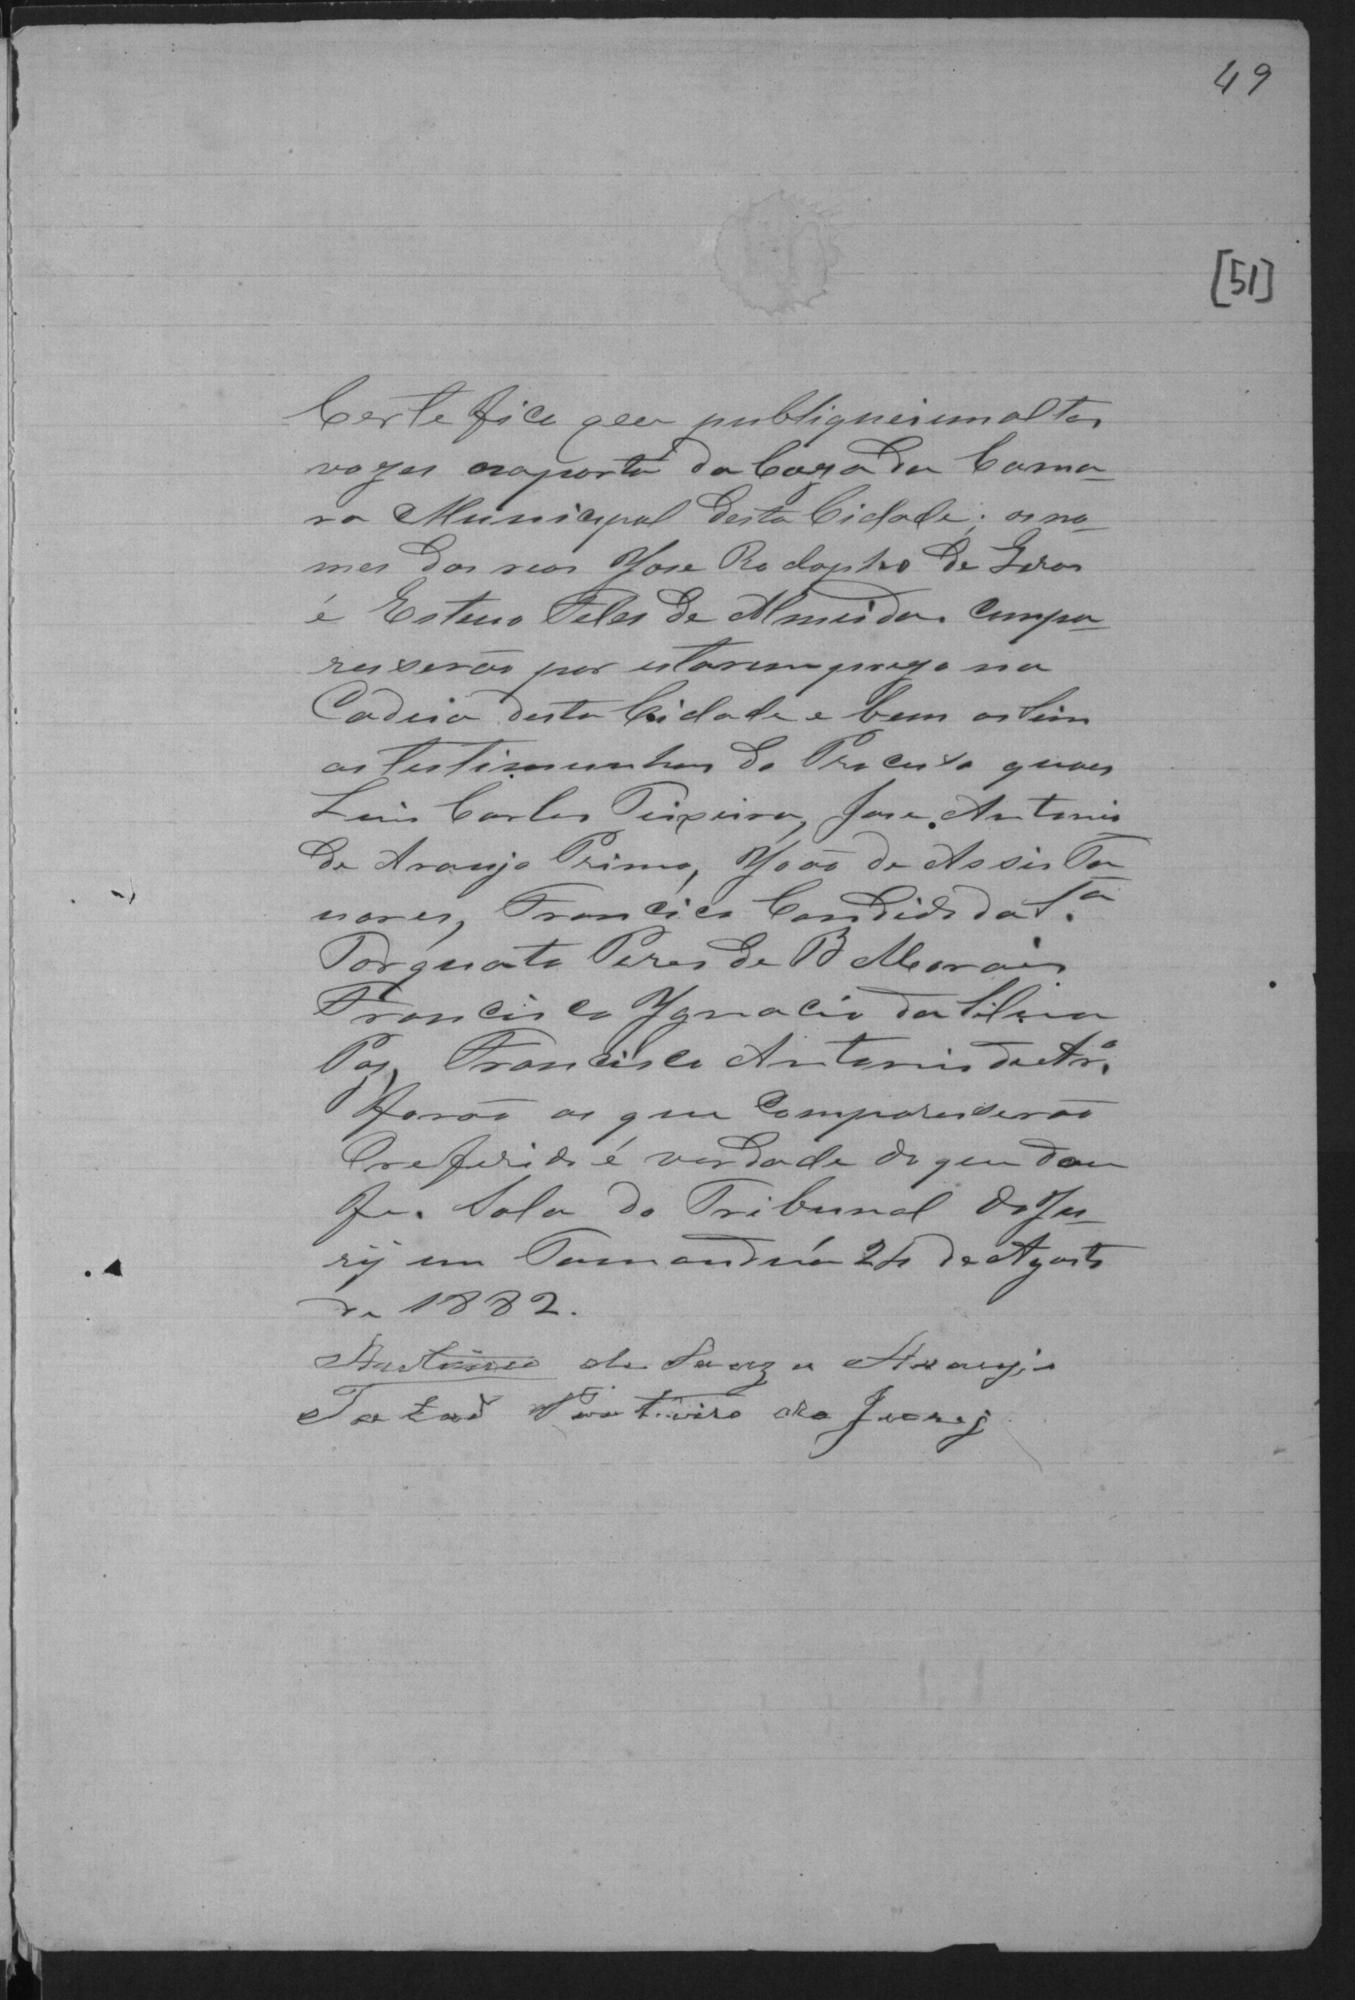 49
[51]
Certefico que publiquei em altas
vozes na porta da Caza da Cama-
ra Municipal desta Cidade; os no-
mes dos reos Yose Rodopho de
é Estevo Teles de Almeida compa-
reserão por estarem prezo na
Cadeia desta Cidade e bem assim
as testimunhas do Procexo quaes
Luis Carlos Teixeira, Jose Antonio
de Araujo Primo, Yoão de Assis Ta
vares, Francisco Candido da S.a
Torquato Pires de B Morais
Francisco Ygnacio da Silva
Paz, Francisco Antonio de Ar.o
forão as que comparecerão
O referido é verdade do que dou
fe. Sala do Tribunal do Ju-
ry em Tamanduá 24 de Agosto
de 1882.
Antonio de Souza Araujo
Porteiro do Jury